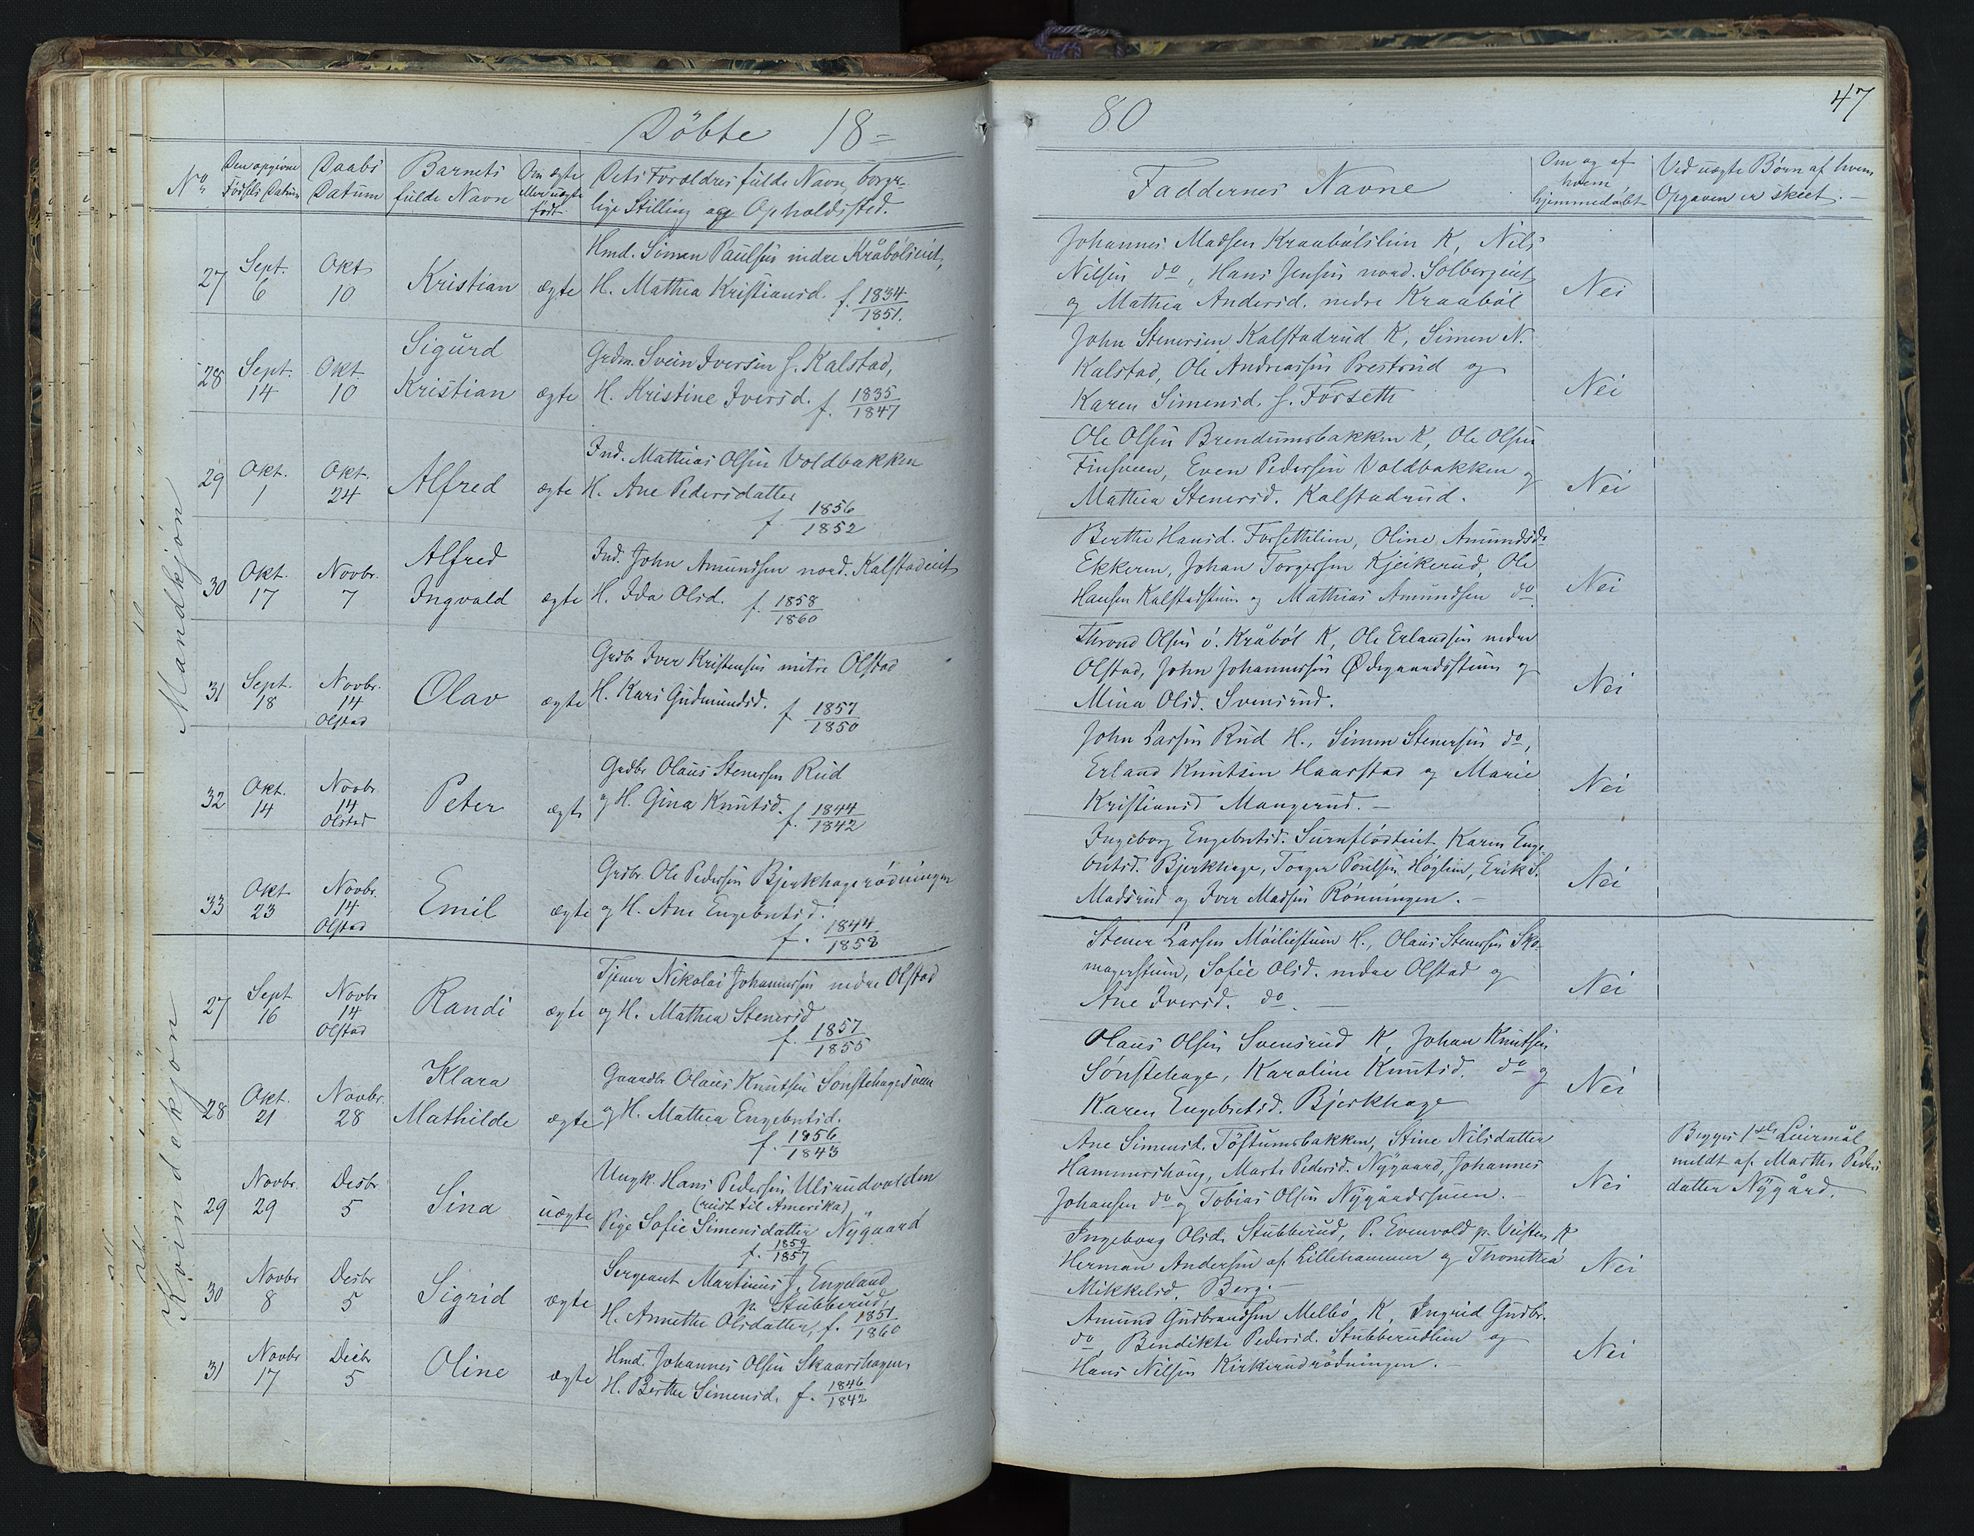 Døbte 18-
80
47
No
Den opgivne
Fødsels Datum
Daabs
Datum
Barnets
fulde Navn
Om ægte
eller uægte
født.
Dets Forældres fulde Navn, borger-
lige Stilling og Opholdssted.
Faddernes Navne
Om og af
hvem
hjemmedøbt
Ved uægte Børn af hvem
Opgaven er skeet.
Mandkjøn
27 Sept. 6 Okt 10 Kristian ægte
Hmd. Simen Paulsen nedre Kråbølseiet,
H. Mathea Kristiansd. f. 1834/1851.
Johannes Madsen Kraabølslien K, Nils
Nilsen do, Hans Jensen nord. Solbergeiet
og Mathea Andersd. nedre Kraabøl
Nei
28 Sept. 14 Okt 10 Sigurd
Kristian ægte
Grdm. Svein Iversen s. Kalstad,
H. Kristine Iversd. f. 1835/1847
John Stenersen Kalstadrud K, Simen N.
Kalstad, Ole Andreassen Prestrud og
Karen Simensd. s. Forseth
Nei
29 Okt. 1 Okt. 24 Alfred ægte
Ind. Mathias Olsen Voldbakken
H. Ane Pedersdatter
f. 1856/1852
Ole Olsen Brendumsbakken K, Ole Olsen
Finsveen, Even Pedersen Voldbakken og
Mathea Stenersd. Kalstadrud.
Nei
30 Okt. 17 Novbr. 7 Alfred
Ingvald ægte
Ind. John Amundsen nord. Kalstadeiet
H. Ida Olsd. f. 1858/1860
Berthe Hansd. Forsethlien, Oline Amundsdr
Ekkeren, Johan Torgersen Kjeikerud, Ole
Hansen Kalstadstuen og Mathias Amundsen do
Nei
31 Sept. 18 Novbr. 14 Olstad Olav ægte
Grdbr Iver Kristensen mitre Olstad
H. Kari Gudmundsd. f. 1857/1850
Thrond Olsen ö. Kråbøl K, Ole Erlandsen nedre
Olstad, John Johannessen Ødegaardsstuen og
Mina Olsd. Svensrud.
Nei
32 Okt. 14 Novbr 14 Olstad Peter ægte
Grdbr Olaus Stenersen Rud
og H. Gina Knutsd. f. 1844/1842
John Larsen Rud H., Simen Stenersen do,
Erland Knutsen Haarstad og Marie
Kristiansd Mangerud. –
Nei
33 Okt 23 Novbr. 14 Olstad Emil ægte
Grdbr. Ole Pedersen Bjerkhagerødningen
og H. Ane Engebretsd.
f. 1844/1858
Ingeborg Engebretsd. Surnflödteiet, Karen Enge-
bretsd. Bjerkhage, Torger Poulsen Høglien, Erik S.
Madsrud og Iver Madsen Rønningen. –
Nei
Kvindekjøn
27 Sept 16 Novbr 14 Olstad Randi ægte
Tjener Nikolai Johannessen nedre Olstad
og H. Mathea Stenersd
f. 1857/1855
Stener Larsen Möiliestuen H., Olaus Stenersen Sko-
magerstuen, Sofie Olsd. nedre Olstad og
Ane Iversd. do. –
Nei
28 Okt. 21 Novbr. 28 Klara
Mathilde ægte
Gaardbr Olaus Knutsen Sønstehagesveen
og H. Mathea Engebretsd.
f. 1856/1843
Olaus Olsen Svensrud K, Johan Knutsen
Sønstehage, Karoline Knutsd. do og
Karen Engebretsd. Bjerkhage
Nei
29 Novbr. 29 Desbr 5 Sina uægte
Ungk. Hans Pedersen Ulsrudvolden
(reist til Amerika),
Pige Sofie Simensdatter Nygaard
f. 1859/1857
Ane Simensd. Töftumsbakken, Stine Nilsdatter
Hammershoug, Marte Pedersd. Nygaard, Johannes
Johansen do og Tobias Olsen Nygårdssveen.
Nei
Begges 1ste Leiermål
meldt af Marthe Peders
datter Nygård.
30 Novbr 8 Desbr 5 Sigrid ægte
Sergeant Martinus J. Engeland
p. Stubberud
H. Annette Olsdatter, f. 1851/1860
Ingeborg Olsd. Stubberud, P. Evenvold p. Veisten K
Herman Andersen af Lillehammer og Thonethea
Mikkelsd. Berg.
Nei
31 Novbr 17 Desbr 5 Oline ægte
Hmd. Johannes Olsen Skaarshagen,
H. Berthe Simensd. f. 1846/1842
Amund Gudbrandsen Melbö K, Ingrid Gudbr.
do Bendikte Pedersd. Stubberudlien og
Hans Nilsen Kirkerudrödningen.
Nei